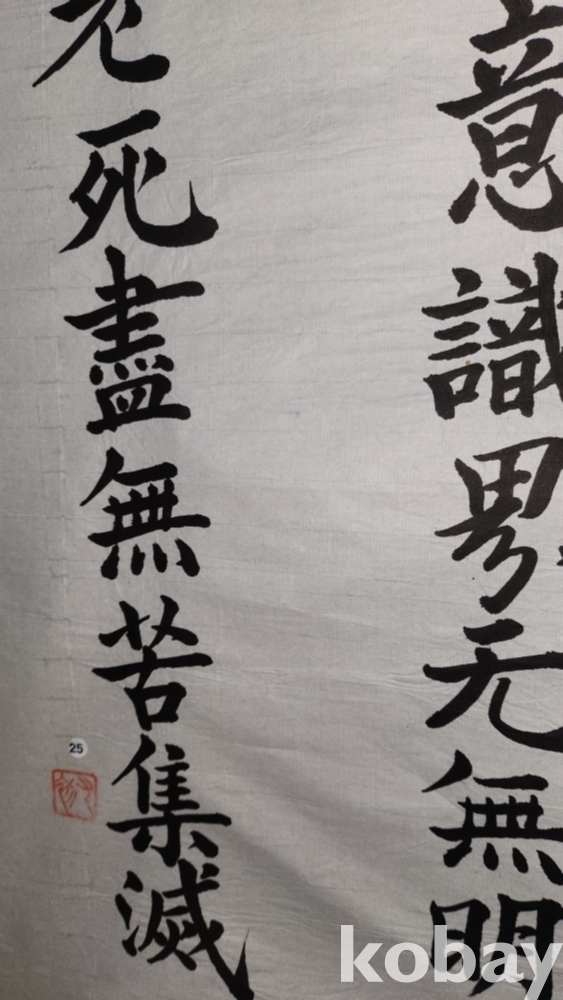 意識界无無明
老死盡無苦集滅
25
kobay